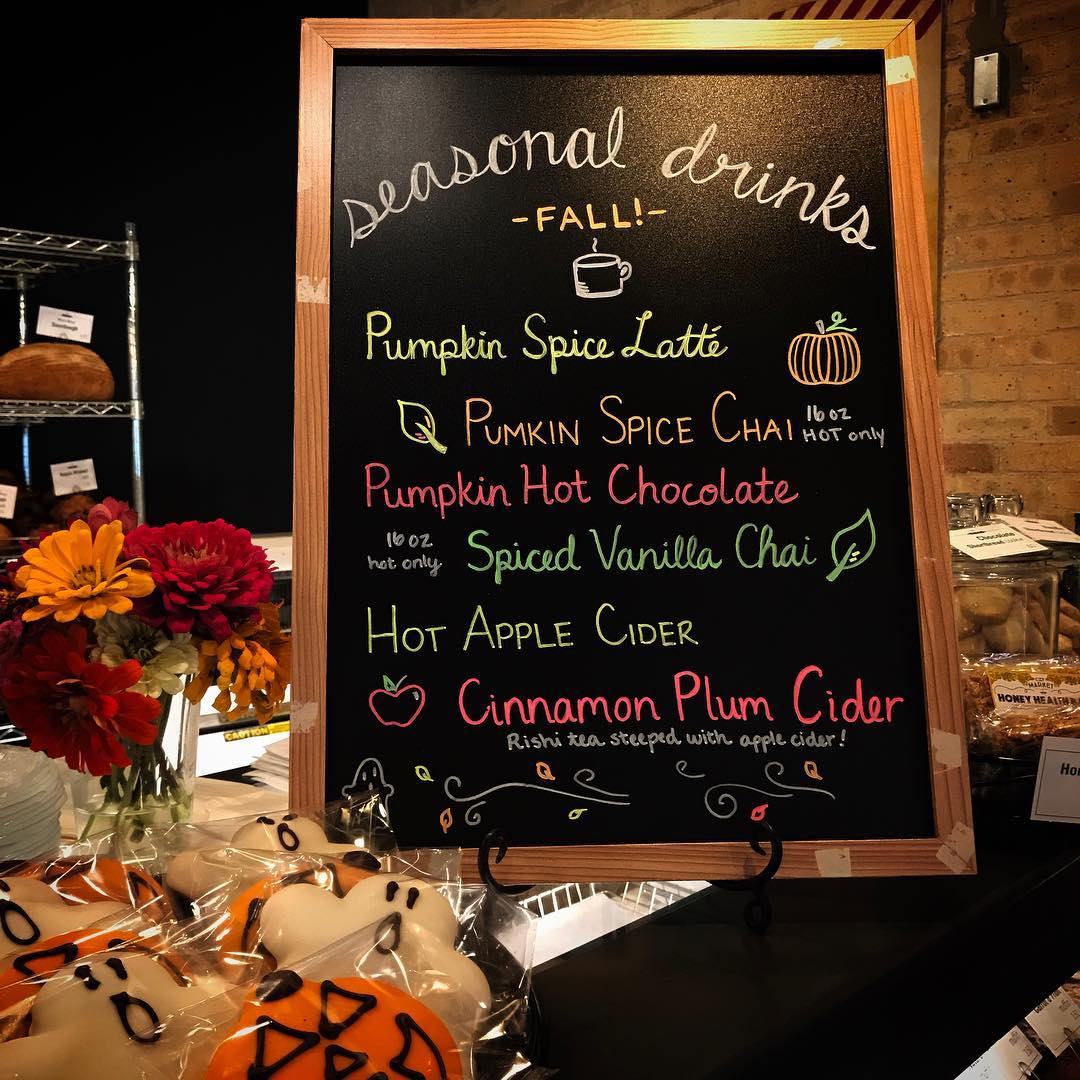 seasonal drinks
-FALL!-
Pumpkin Spice Latté
PUMKIN SPICE CHAI 16 oz HOT only
Pumpkin Hot Chocolate
16 oz hot only
Spiced Vanilla Chai
HOT APPLE CIDER
Cinnamon Plum Cider
Rishi tea steeped with apple cider!
CAUTION
Chocolate
Shortbread
MARKET
HONEY HEALTH
Hon